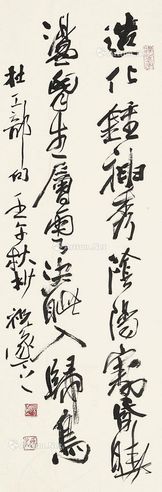 造化鍾神秀陰陽割昏曉
盪胸生層雲決眥入歸鳥
杜工部句壬午秋杪祝遂之